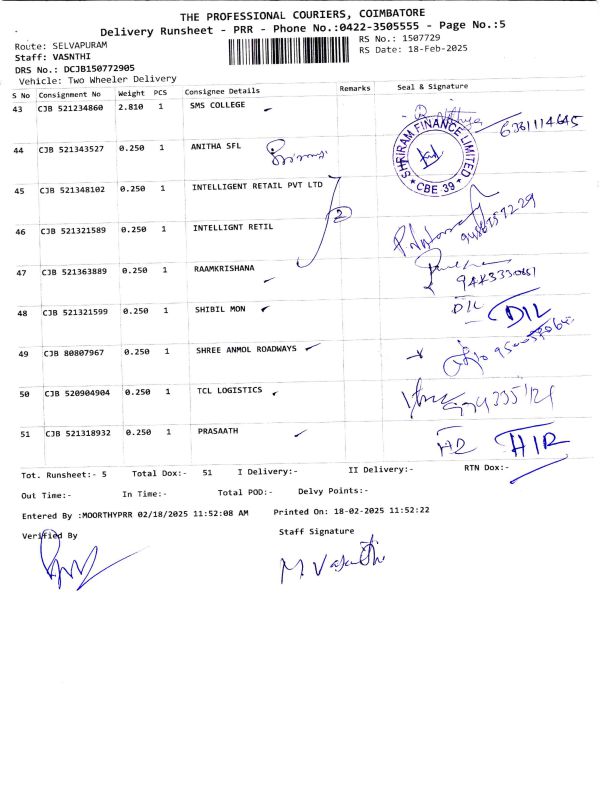 THE PROFESSIONAL COURIERS, COIMBATORE
Delivery Runsheet - PRR - Phone No.:0422-3505555 - Page No.:5
Route: SELVAPURAM
RS No.: 1507729
Staff: VASNTHI
RS Date: 18-Feb-2025
DRS No.: DCJB150772905
Vehicle: Two Wheeler Delivery
S No Consignment No Weight PCS Consignee Details Remarks Seal & Signature
43 CJB 521234860 2.810 1 SMS COLLEGE 6361114645
44 CJB 521343527 0.250 1 ANITHA SFL
SHRIRAM FINANCE LIMITED
* CBE 39 *
45 CJB 521348102 0.250 1 INTELLIGENT RETAIL PVT LTD
2
46 CJB 521321589 0.250 1 INTELLIGNT RETIL
47 CJB 521363889 0.250 1 RAAMKRISHANA
48 CJB 521321599 0.250 1 SHIBIL MON DIL DIL
49 CJB 80807967 0.250 1 SHREE ANMOL ROADWAYS
50 CJB 520904904 0.250 1 TCL LOGISTICS
51 CJB 521318932 0.250 1 PRASAATH HIR
Tot. Runsheet:- 5 Total Dox:- 51 I Delivery:- II Delivery:- RTN Dox:-
Out Time:- In Time:- Total POD:- Delvy Points:-
Entered By :MOORTHYPRR 02/18/2025 11:52:08 AM Printed On: 18-02-2025 11:52:22
Verified By Staff Signature
M. Vasanthi